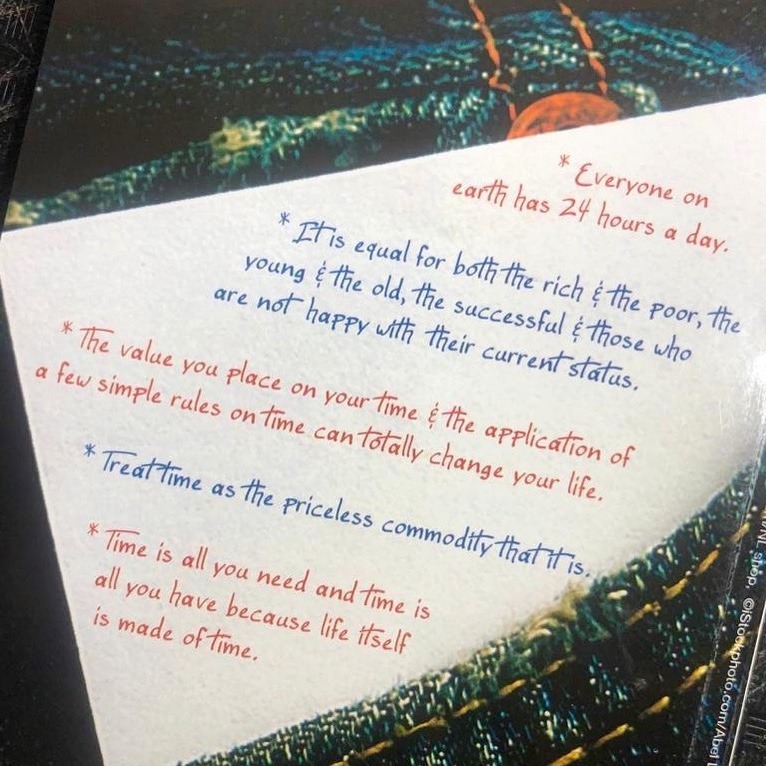 * Everyone on
earth has 24 hours a day.
* It is equal for both the rich & the poor, the
young & the old, the successful & those who
are not happy with their current status.
* The value you place on your time & the application of
a few simple rules on time can totally change your life.
* Treat time as the priceless commodity that it is.
* Time is all you need and time is
all you have because life itself
is made of time.
shop, ©iStockphoto.com/Abel